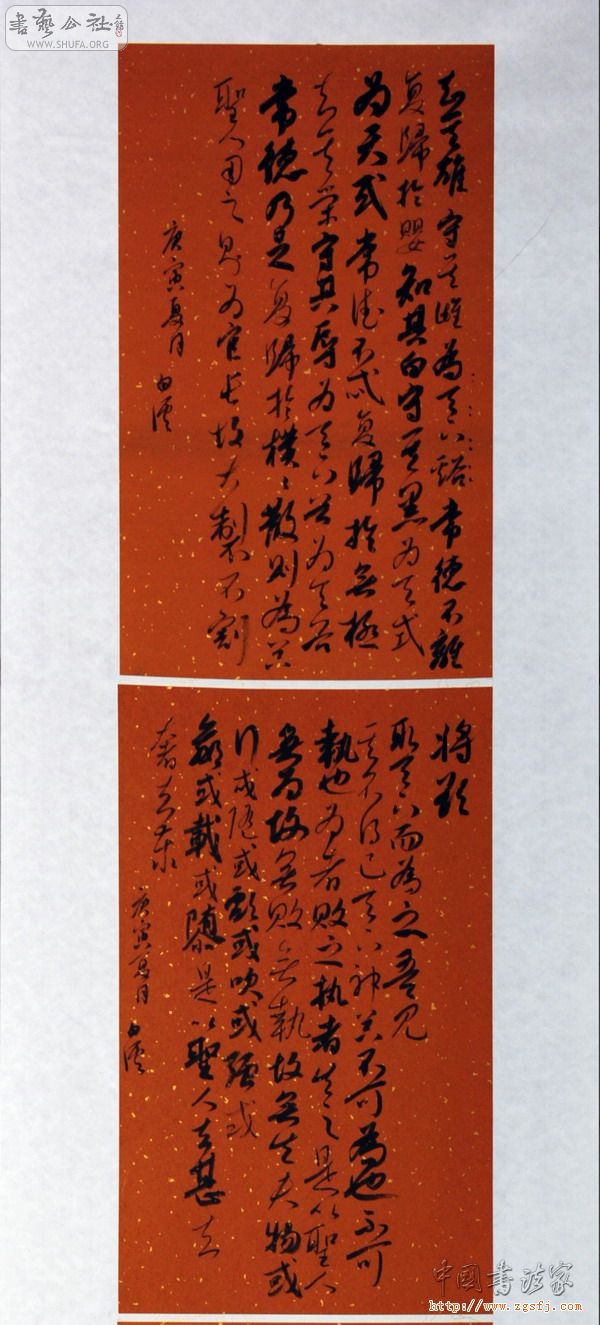 書藝公社
WWW.SHUFA.ORG
知其雄守其雌為天下谿常德不離
復歸於嬰知其白守其黑為天式
為天式常德不忒復歸於無極
知其榮守其辱為天下谷為天谷
常德乃足復歸於樸〻散則為器
聖人用之則為官長故大製不割
庚寅夏月 白
將欲
取天下而為之吾見
其不得已天下神器不可為也不可
執也為者敗之執者失之是以聖人
無為故無敗無執故無失夫物或
行或隨或歔或吹或強或
羸或載或隳是以聖人去甚去
奢去泰
庚寅夏月 白
中國書法家
http://www.zgsfj.com